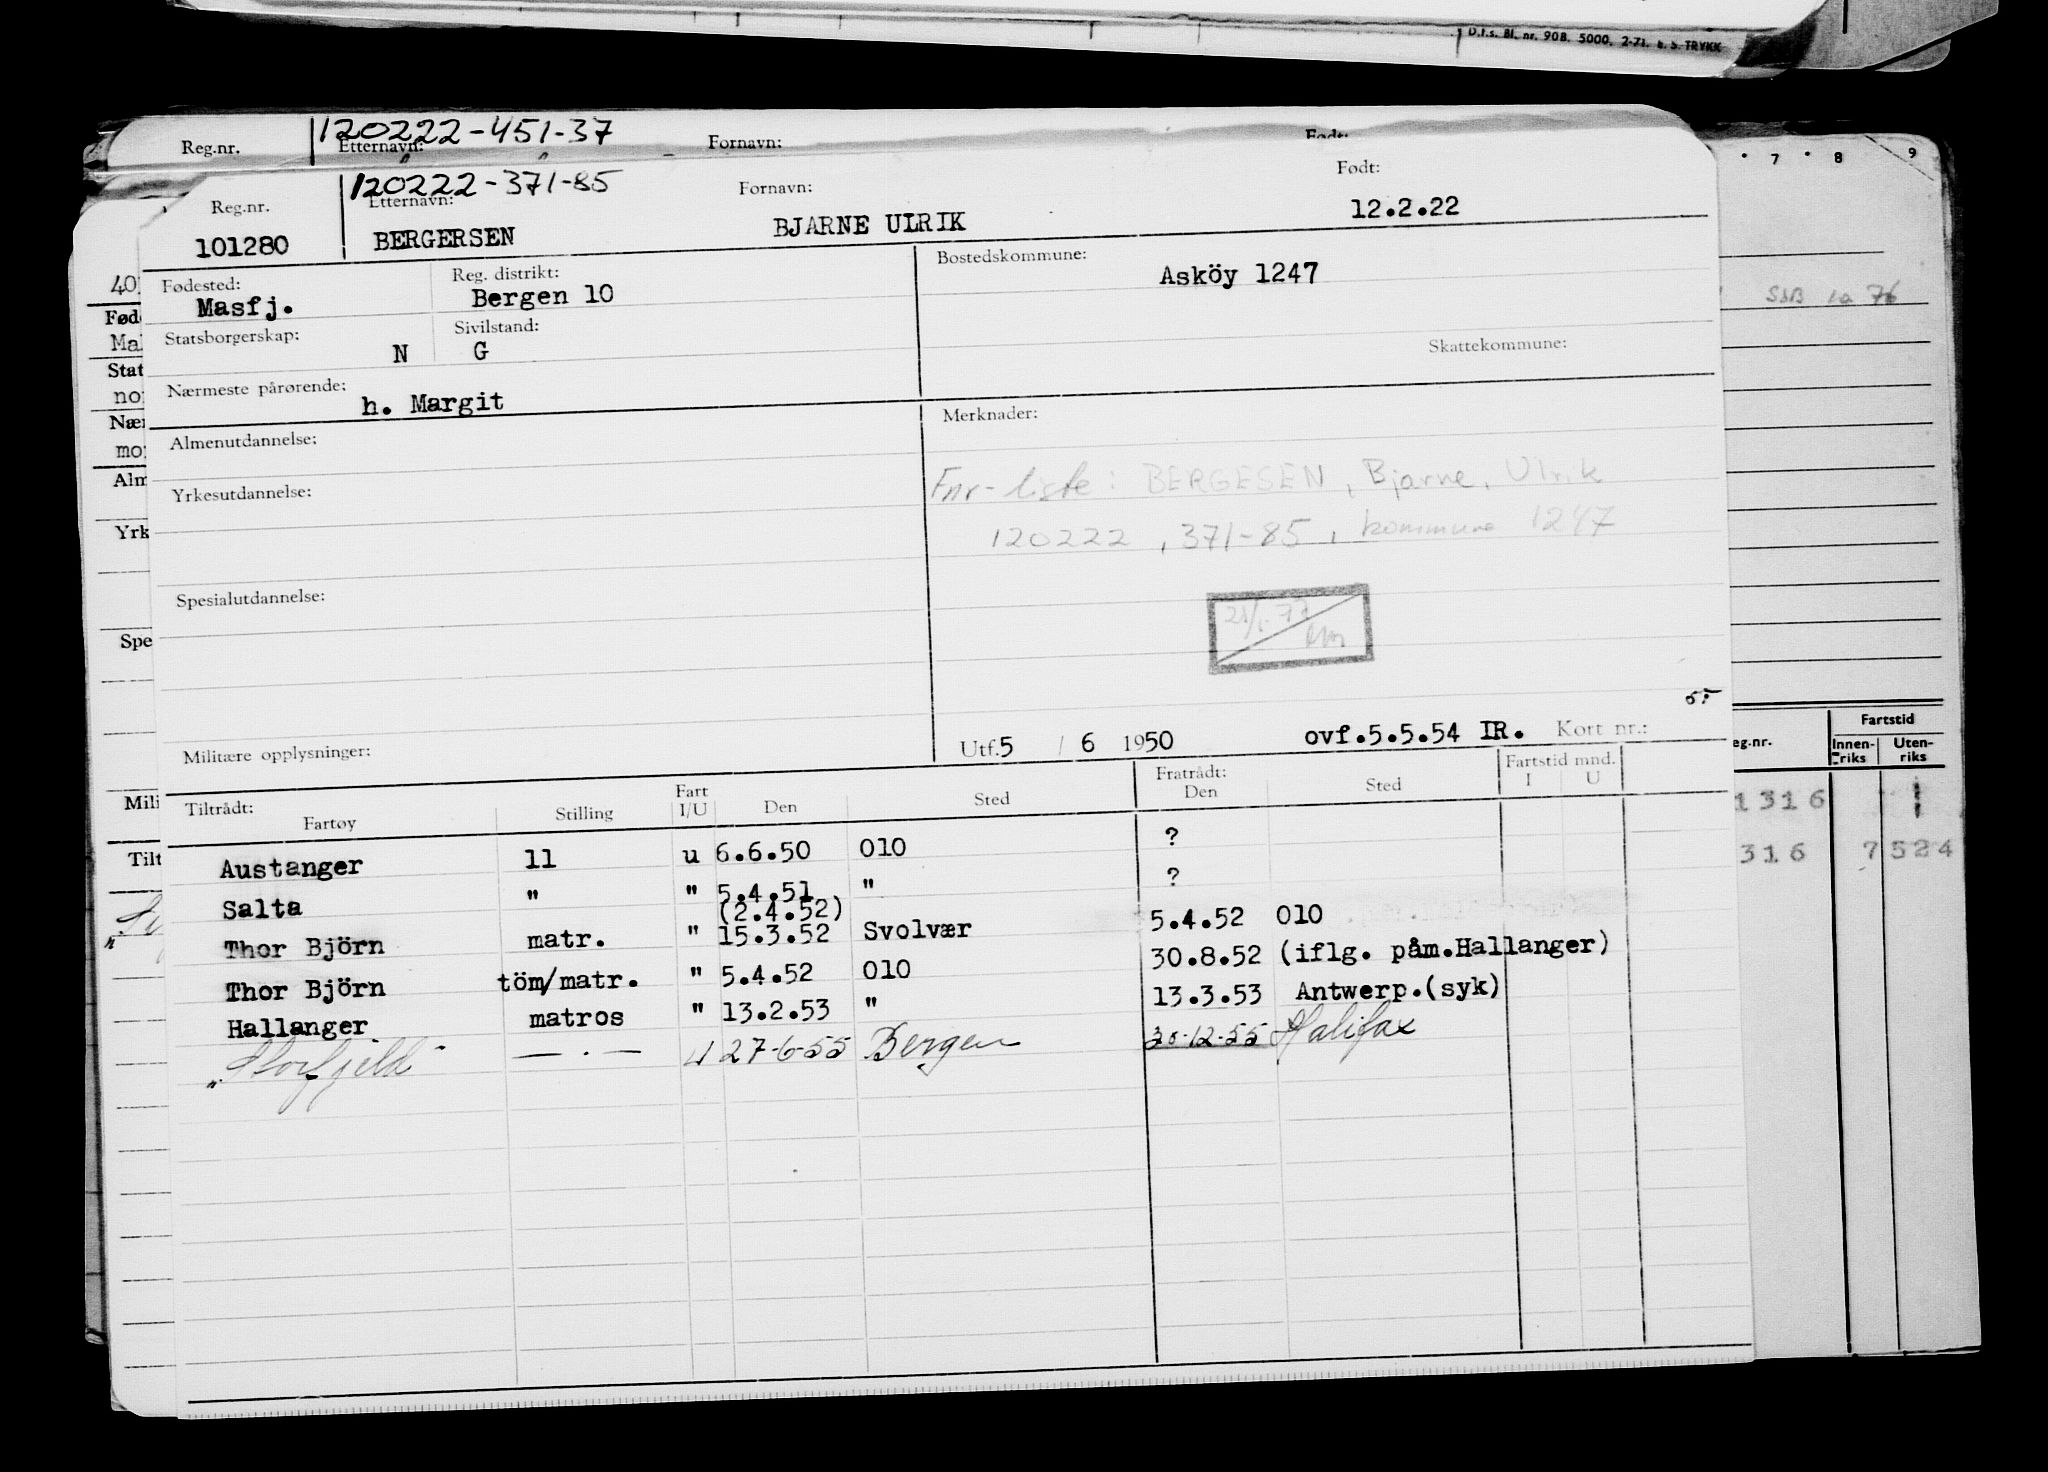 D.f.s. Bl. nr. 908. 5000. 2-71. E. S. TRYKK
120222-451-37
Reg.nr. Etternavn: Fornavn: Født:
120222-371-85
Reg.nr. Etternavn: Fornavn: Født:
101280 BERGERSEN BJARNE ULRIK 12.2.22
Fødested: Reg. distrikt: Bostedskommune:
Masfj. Bergen 10 Asköy 1247
Statsborgerskap: Sivilstand:
N G Skattekommune:
Nærmeste pårørende:
h. Margit
Almenutdannelse: Merknader:
Fnr-liste: BERGESEN, Bjarne, Ulrik
Yrkesutdannelse:
120222, 371-85, kommune 1247
Spesialutdannelse:
Militære opplysninger: Utf.5 / 6 1950 ovf.5.5.54 IR. Kort nr.:
Tiltrådt: Fart Fratrådt: Fartstid mnd.
Fartøy Stilling I/U Den Sted Den Sted I U
Austanger ll u 6.6.50 010 ?
Salta " " 5.4.51 " ?
(2.4.52)
Thor Björn matr. " 15.3.52 Svolvær 5.4.52 010
Thor Björn töm/matr. " 5.4.52 010 30.8.52 (iflg. påm.Hallanger)
Hallanger matros " 13.2.53 " 13.3.53 Antwerp.(syk)
"Storfjeld" — . — U 27-6-55 Bergen 30-12-55 Halifax
7 8 9
SSB 1a 76
eg.nr. Fartstid
Innenriks Utenriks
1316 1
316 7 524
40
Fød
Mal
Stat
no
Nær
mo
Alm
Yrk
Spe
Mili
Tilt